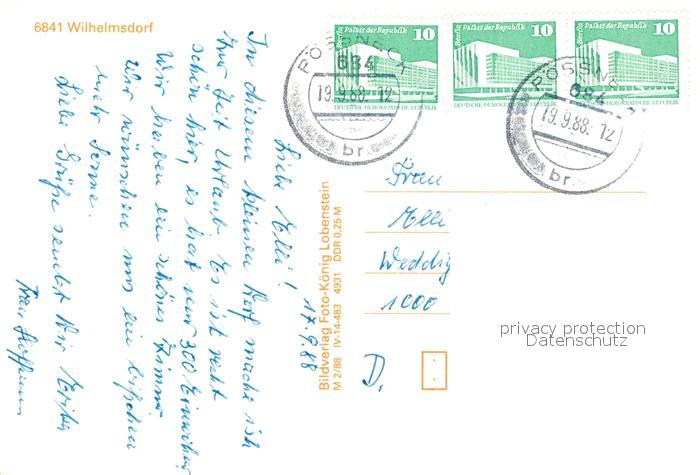 6841 Wilhelmsdorf
Berlin Palast der Republik 10
DEUTSCHE DEMOKRATISCHE REPUBLIK
Berlin Palast der Republik 10
DEUTSCHE DEMOKRATISCHE REPUBLIK
Berlin Palast der Republik 10
DEUTSCHE DEMOKRATISCHE REPUBLIK
PÖSSNECK
684
19.9.88-12
br.
PÖSSNE
684
19.9.88-12
br.
17.9.88
Liebe Elli!
In diesem kleinen Dorf mache ich
zur Zeit Urlaub. Es ist recht
schön hier, es hat nur 300 Einwohner
Wir haben ein schönes Zimmer
Wir wünschen uns ein bißchen
mehr Sonne.
Liebe Grüße sendet Dir
Frau Hoffmann
Bildverlag Foto-König Lobenstein
M 2/88 IV-14-483 4931 DDR 0,25 M
Frau
Elli
Weddig
1000
D.
privacy protection
Datenschutz